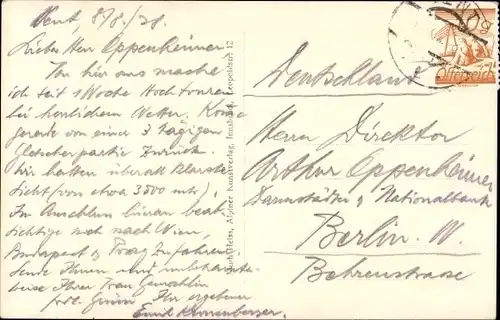 Vent, 8/8./28.
Lieber Herr Oppenheimer
Von hier aus mache
ich seit 1 Woche Hochtouren
bei herrlichem Wetter. Komme
gerade von einer 3 tägigen
Gletscherpartie zurück.
Wir hatten überall klarste
Sicht (von etwa 3800 mtr).
Im Anschluss hieran beab-
sichtige noch nach Wien,
Budapest & Prag zu fahren.
sende Ihnen und unbekannter-
weise Ihrer Frau Gemahlin
frdl. Grüsse Ihr ergebener
Emil
Much Heiss, Alpiner Kunstverlag, Innsbruck, Leopoldstr. 12
Österreich
Deutschland
Herrn Direktor
Arthur Oppenheimer
Darmstädter & Nationalbank
Berlin. W.
Behrenstrasse